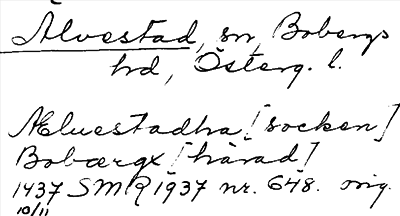 Älvestad, sn, Bobergs
hd, Österg. l.
Ælvestadha [socken]
Bobærgx [härad]
1437 SMR 1937 nr. 648. orig.
10/11